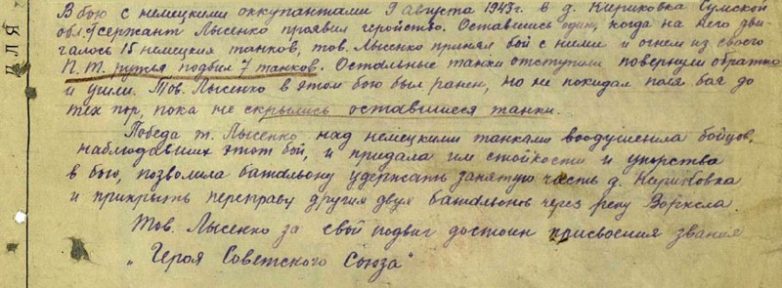 В бою с немецкими оккупантами 9 августа 1943 г. в д. Кириковка Сумской
обл. сержант Лысенко проявил геройство. Оставшись один, когда на него дви-
галось 15 немецких танков, тов. Лысенко принял бой с ними и огнем из своего
П.Т. ружья подбил 7 танков. Остальные танки отступили повернули обратно
и ушли. Тов. Лысенко в этом бою был ранен, но не покидал поля боя до
тех пор, пока не скрылись оставшиеся танки.
Победа т. Лысенко над немецкими танками воодушевила бойцов,
наблюдавших этот бой, и придала им стойкости и упорства
в бою, позволила батальону удержать занятую часть д. Кириковка
и прикрыть переправу других двух батальонов через реку Ворскла.
Тов. Лысенко за свой подвиг достоин присвоения звания
„Героя Советского Союза“